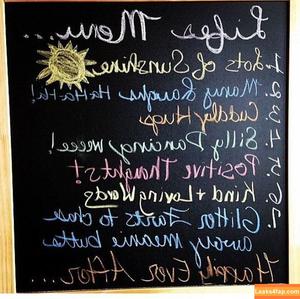 Lifes Menu...
1. Lots of Sunshine
2. Many Laughs HaHaHa!
3. Cuddly Hugs
4. Silly Dancing weee!
5. Positive Thoughts!
6. Kind + Loving Words
7. Glitter Farts to chase
away meanie butts
Happily Ever After...
Leaks4fap.com